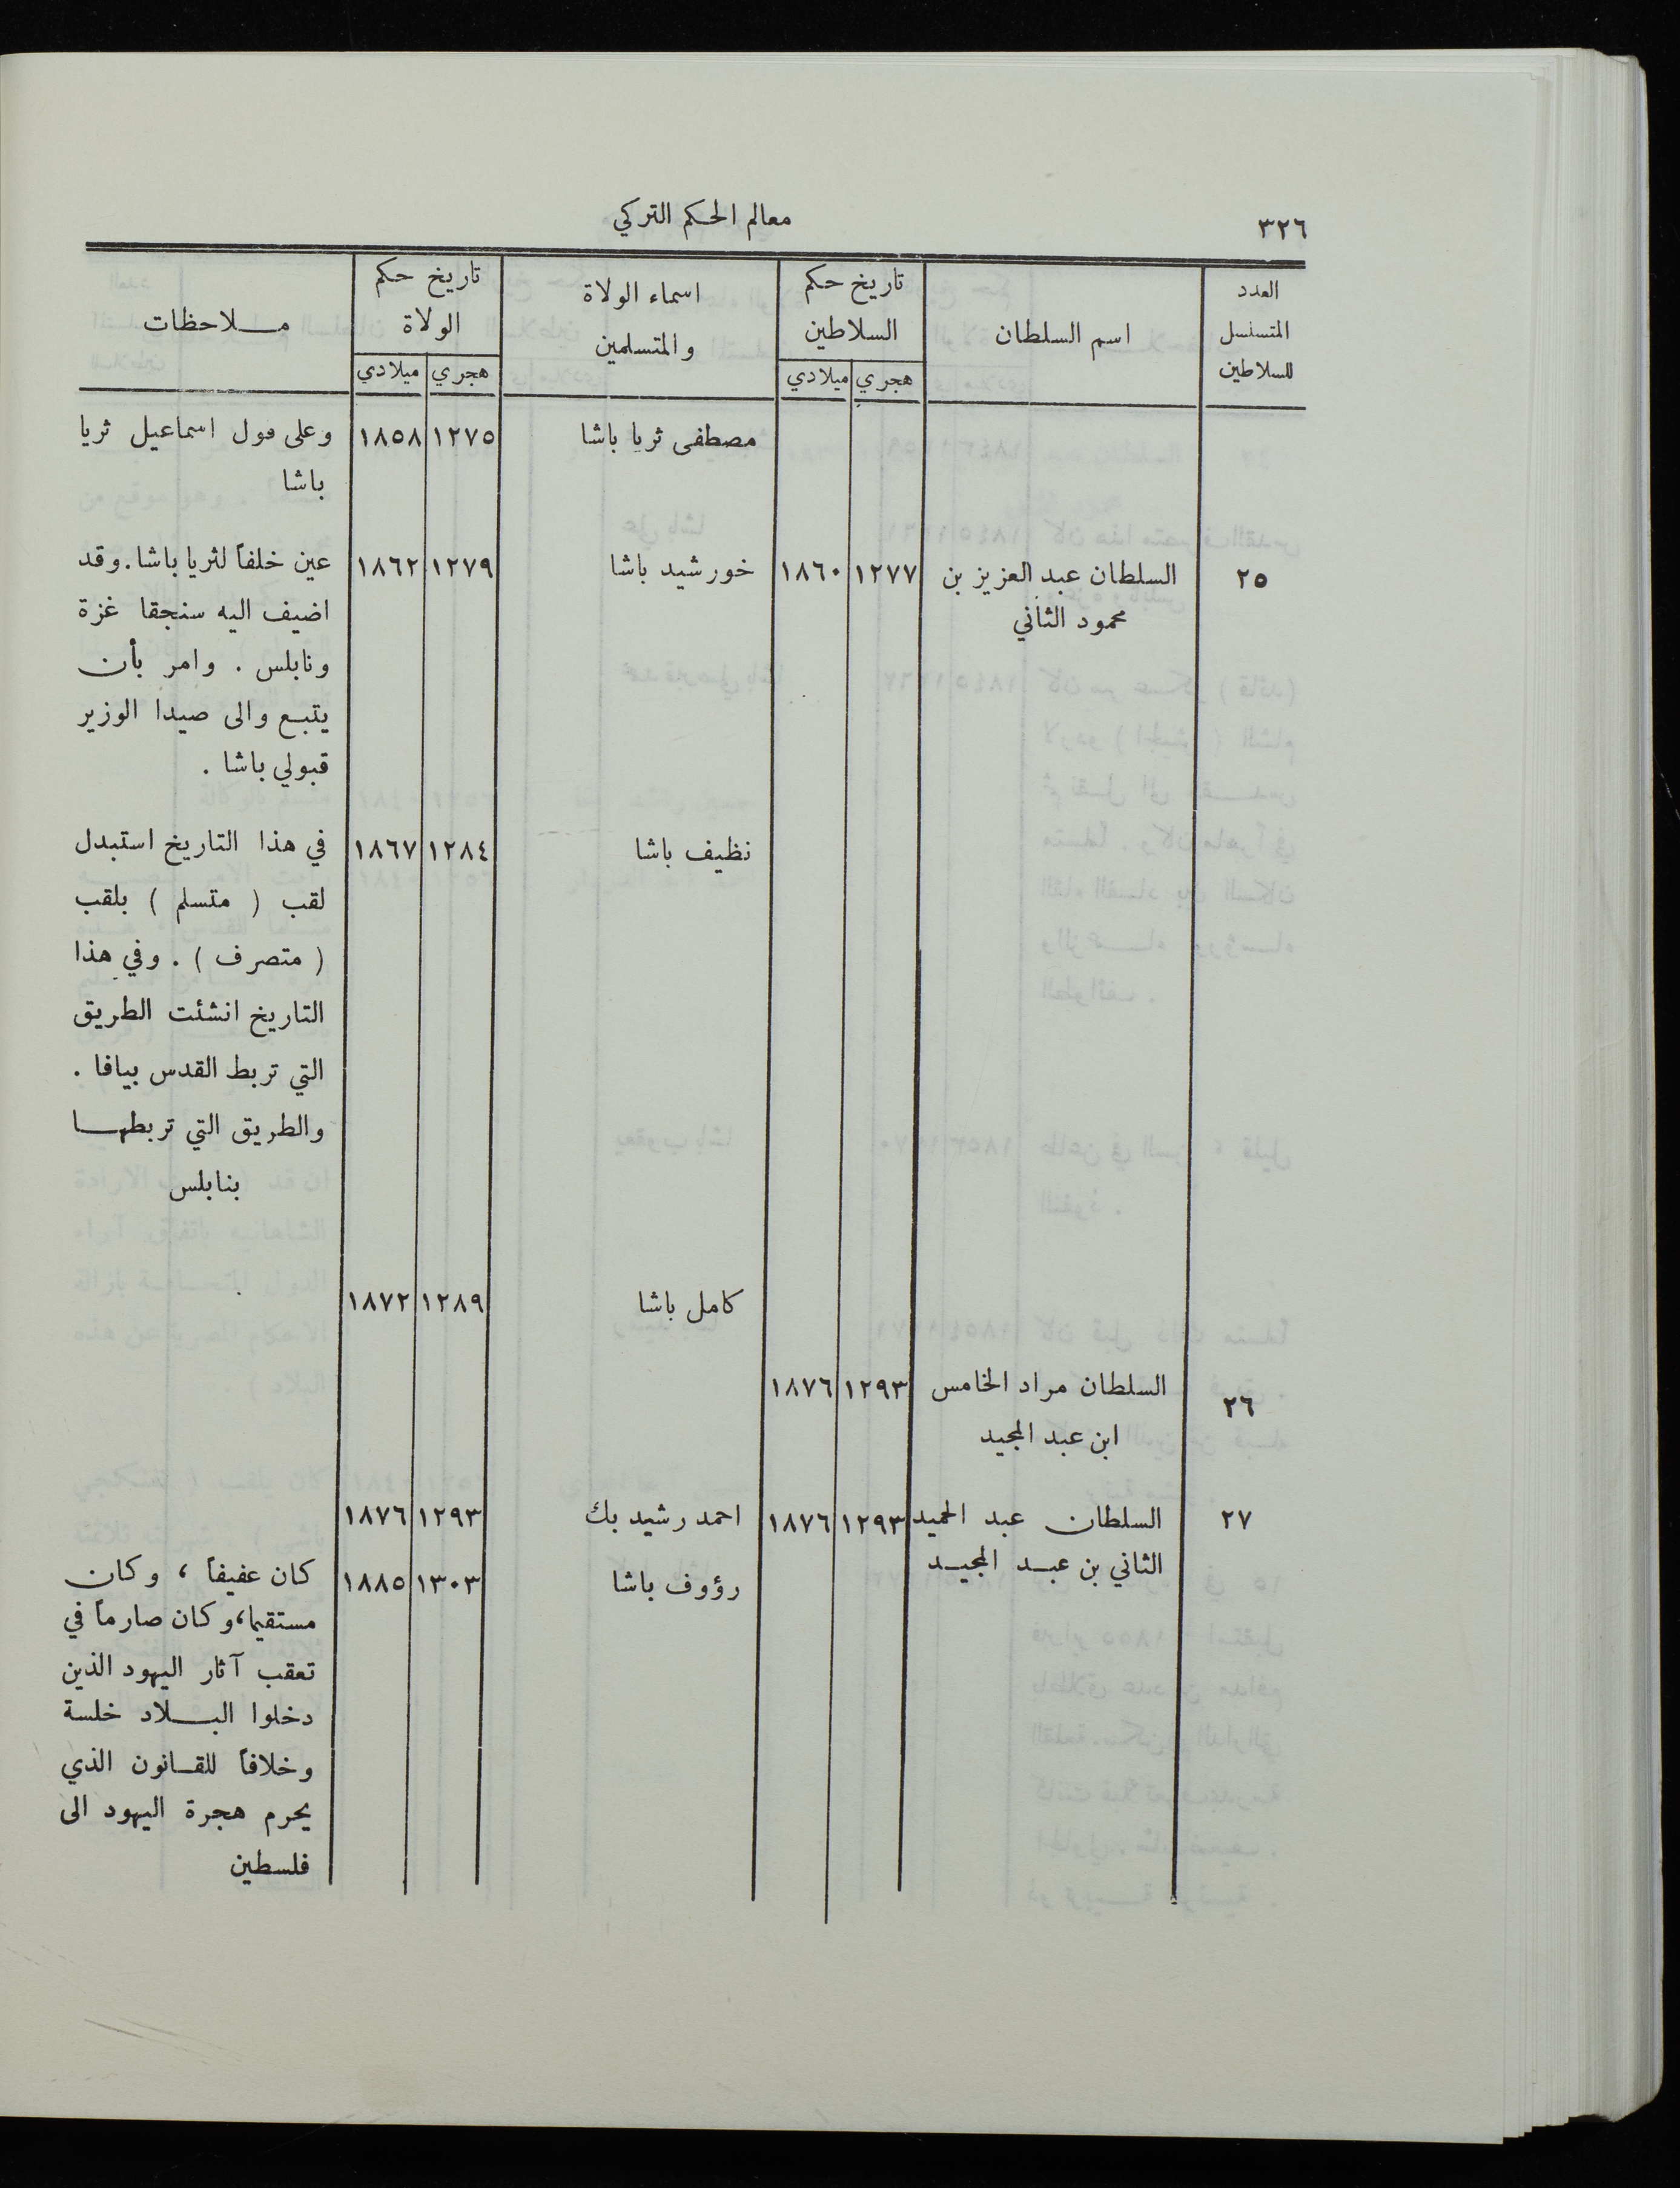 ٣٢٦
معالم الحكم التركي
العدد المتسلسل للسلاطين
اسم السلطان
تاريخ حكم السلاطين
هجري ميلادي
اسماء الولاة والمتسلمين
تاريخ حكم الولاة
هجري ميلادي
ملاحظات
مصطفى ثريا باشا ١٢٧٥ ١٨٥٨ وعلى قول اسماعيل ثريا
باشا
٢٥ السلطان عبد العزيز بن ١٢٧٧ ١٨٦٠ خورشيد باشا ١٢٧٩ ١٨٦٢ عين خلفاً لثريا باشا. وقد
محمود الثاني
اضيف اليه سنجقا غزة
ونابلس . وامر بأن
يتبع والى صيدا الوزير
قبولي باشا .
نظيف باشا ١٢٨٤ ١٨٦٧ في هذا التاريخ استبدل
لقب ( متسلم ) بلقب
( متصرف ) . وفي هذا
التاريخ انشئت الطريق
التي تربط القدس بيافا .
والطريق التي تربطها
بنابلس
كامل باشا ١٢٨٩ ١٨٧٢
٢٦ السلطان مراد الخامس ١٢٩٣ ١٨٧٦
ابن عبد المجيد
٢٧ السلطان عبد الحميد ١٢٩٣ ١٨٧٦ احمد رشيد بك ١٢٩٣ ١٨٧٦
الثاني بن عبد المجيد
رؤوف باشا ١٣٠٣ ١٨٨٥ كان عفيفاً ، وكان
مستقيما، وكان صارماً في
تعقب آثار اليهود الذين
دخلوا البلاد خلسة
وخلافاً للقانون الذي
يحرم هجرة اليهود الى
فلسطين